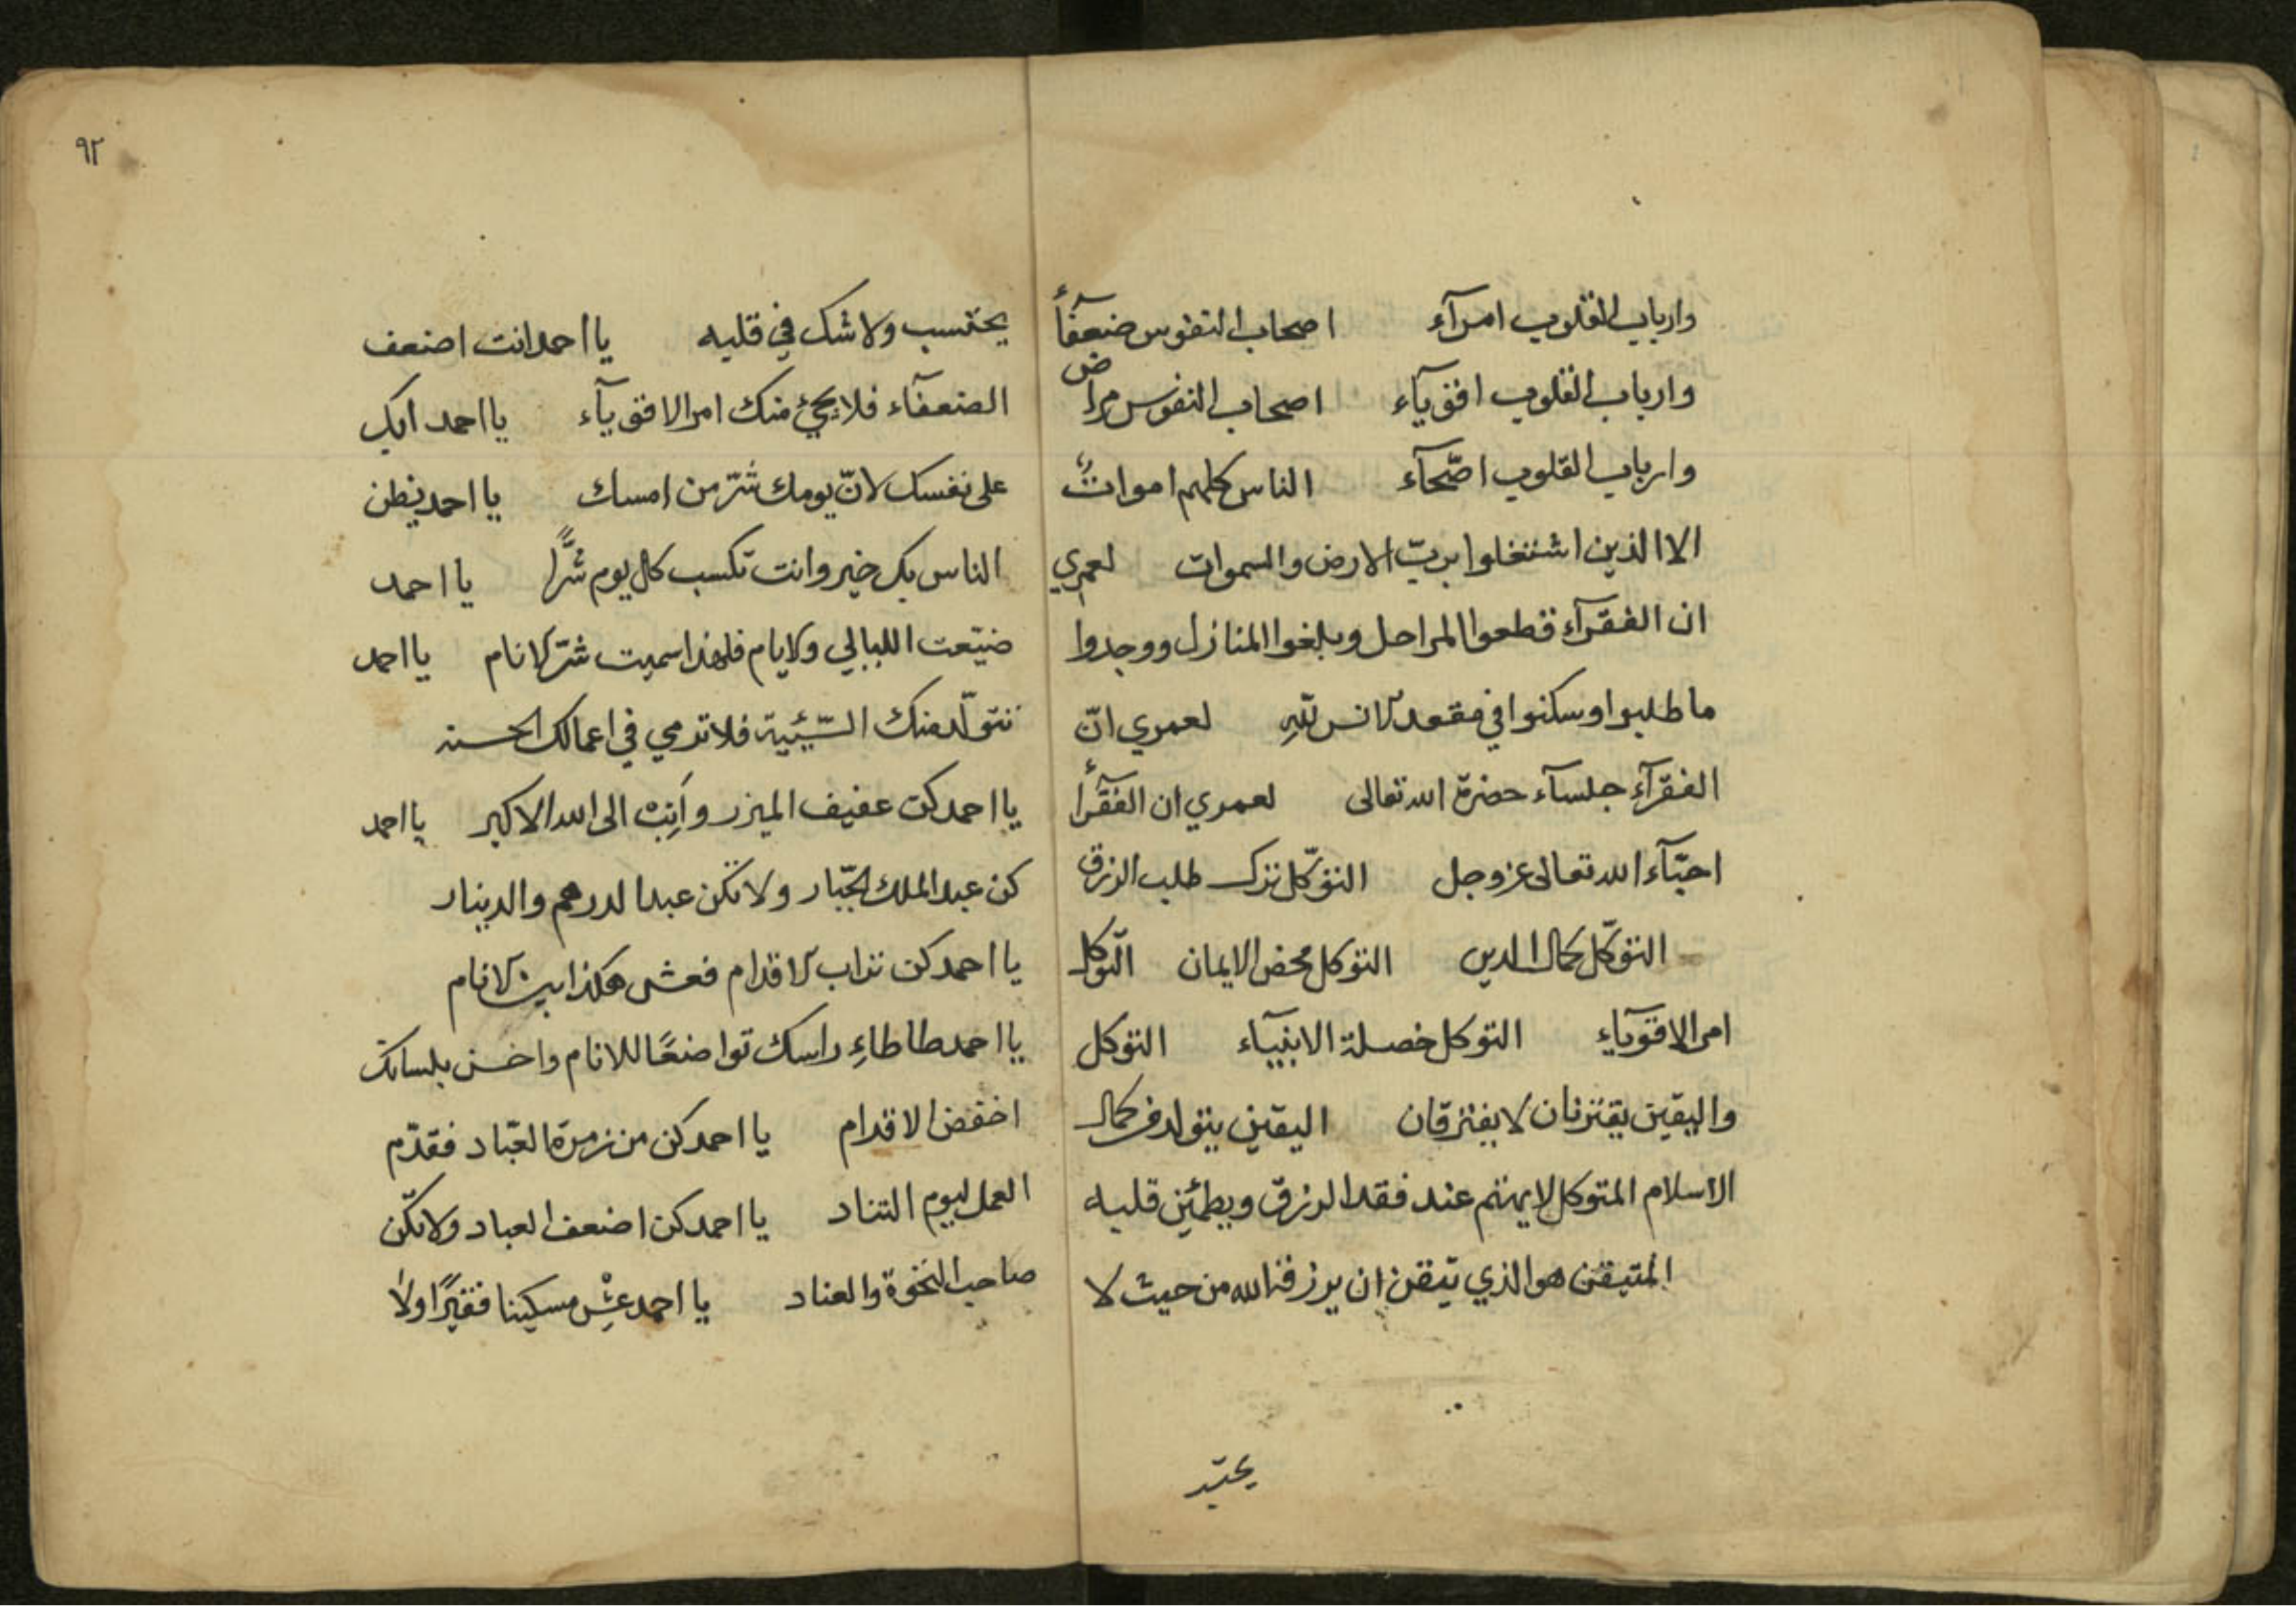 وارباب القلوب امرآء اصحاب النفوس ضعفآءً
وارباب القلوب اقويآء اصحاب النفوس مراض
وارباب القلوب اصّحآء الناس كلهم امواتٌ
الا الذين اشتغلوا بربّ الارض والسموات لعمري
ان الفقرآء قطعوا المراحل وبلغوا المنازل ووجدوا
ما طلبوا وسكنوا في مقعد الانس للّهِ لعمري انّ
الفقرآء جلسآء حضرة الله تعالى لعمري ان الفقرآء
احبّآء الله تعالى عز وجل التوكّل ترك طلب الرزق
التوكّل كمال الدين التوكل محض الايمان التّوكل
امر الاقويآء التوكل خصلة الانبيآء التوكل
واليقين يقترنان لا يفترقان اليقين يتولد من كمال
الاسلام المتوكل لا يهتم عند فقد الرزق ويطمئن قلبه
المتيقن هو الذي تيقن ان يرزقه الله من حيث لا
يحتسب
٩٢
يحتسب ولا شك في قلبه يا احمد انت اضعف
الضعفآء فلا يجئ منك امر الاقويآء يا احمد ابك
على نفسك لانّ يومك شرّ من امسك يا احمد يظن
الناس بك خير وانت تكسب كل يوم شرًّا يا احمد
ضيّعت الليالي والايام فلهذا سميت شرّ الانام يا احمد
تتولّد منك السّيئية فلا تدمي في اعمالك الحسنه
يا احمد كن عفيف الميزر وانِبْ الى الله الاكبر يا احمد
كن عبد الملك الجبّار ولا تكن عبدا لدرهم والدينار
يا احمد كن تراب الاقدام فعش هكذا بين الانام
يا احمد طاطاءِ راسك تواضعًا للانام واخسن بلسانك
اخفض الاقدام يا احمد كن من زمرة العبّاد فقدّم
العمل ليوم التناد يا احمد كن اضعف العباد ولا تكن
صاحب النخوة والعناد يا احمد عِشْ مسكينا فقيرًا ولا